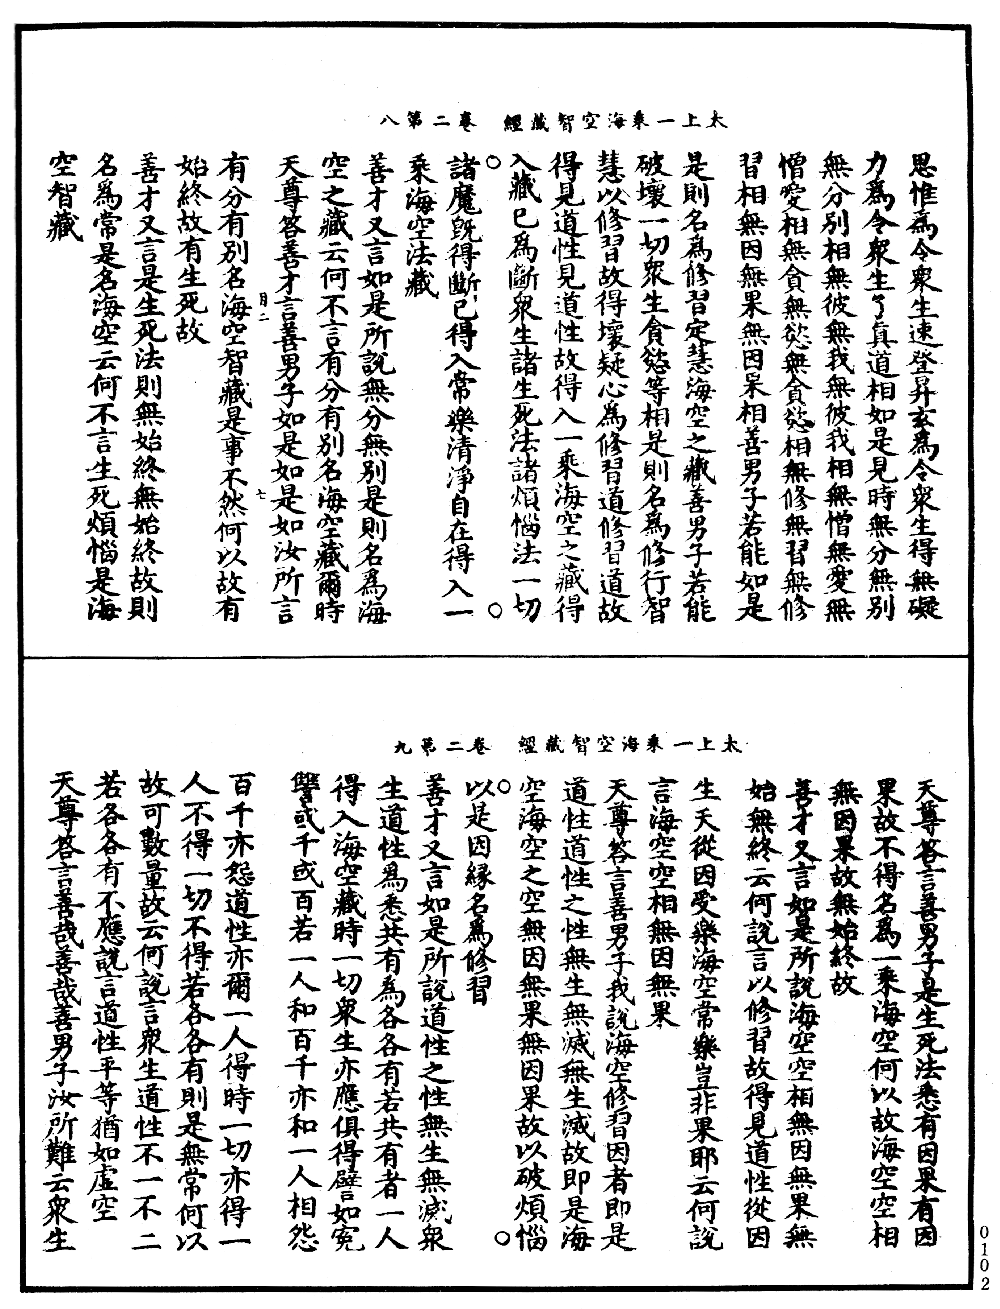 太上一乘海空智藏經　卷二第八
思惟爲令衆生速登昇玄爲令衆生得無礙
力爲令衆生了真道相如是見時無分無別
無分別相無彼無我無彼我相無憎無愛無
憎愛相無貪無慾無貪慾相無修無習無修
習相無因無果無因果相善男子若能如是
是則名爲修習定慧海空之藏善男子若能
破壞一切衆生貪慾等相是則名爲修行智
慧以修習故得壞疑心爲修習道修習道故
得見道性見道性故得入一乘海空之藏得
入藏已爲斷衆生諸生死法諸煩惱法一切
諸魔旣得斷已得入常樂清淨自在得入一
乘海空法藏
善才又言如是所說無分無別是則名爲海
空之藏云何不言有分有別名海空藏爾時
天尊答善才言善男子如是如是如汝所言
月二　七
有分有別名海空智藏是事不然何以故有
始終故有生死故
善才又言是生死法則無始終無始終故則
名爲常是名海空云何不言生死煩惱是海
空智藏
太上一乘海空智藏經　卷二第九
天尊答言善男子是生死法悉有因果有因
果故不得名爲一乘海空何以故海空空相
無因果故無始終故
善才又言如是所說海空空相無因無果無
始無終云何說言以修習故得見道性從因
生天從因受樂海空常樂豈非果耶云何說
言海空空相無因無果
天尊答言善男子我說海空修習因者即是
道性道性之性無生無滅無生滅故即是海
空海空之空無因無果無因果故以破煩惱
以是因緣名爲修習
善才又言如是所說道性之性無生無滅衆
生道性爲悉共有為各各有若共有者一人
得入海空藏時一切衆生亦應俱得譬如冤
讐或千或百若一人和百千亦和一人相怨
百千亦怨道性亦爾一人得時一切亦得一
人不得一切不得若各各有則是無常何以
故可數量故云何說言衆生道性不一不二
若各各有不應說言道性平等猶如虛空
天尊答言善哉善哉善男子汝所難云衆生
0102